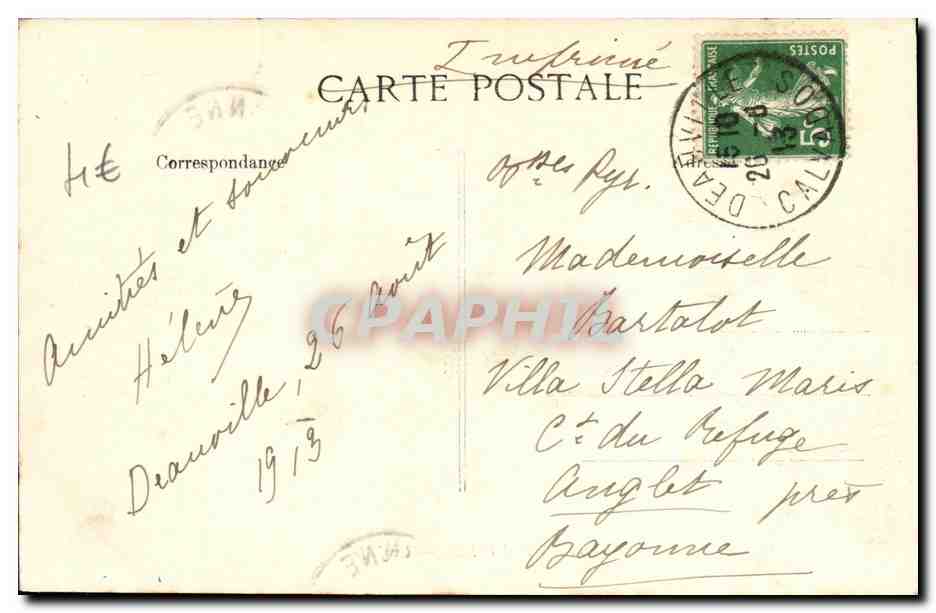 Imprimé
CARTE POSTALE
Correspondance
4€
Amitiés et souvenirs
Hélène
Deauville, 26 août
1913
POSTES
REPUBLIQUE FRANÇAISE
5
DEAUVILLE
CALVADOS
15 10
26 - 8
13
Adresse
Bses Pyr.
Mademoiselle
Bartatot
Villa Stella Maris
Ct. du Refuge
Anglet près
Bayonne
CPAPHIL